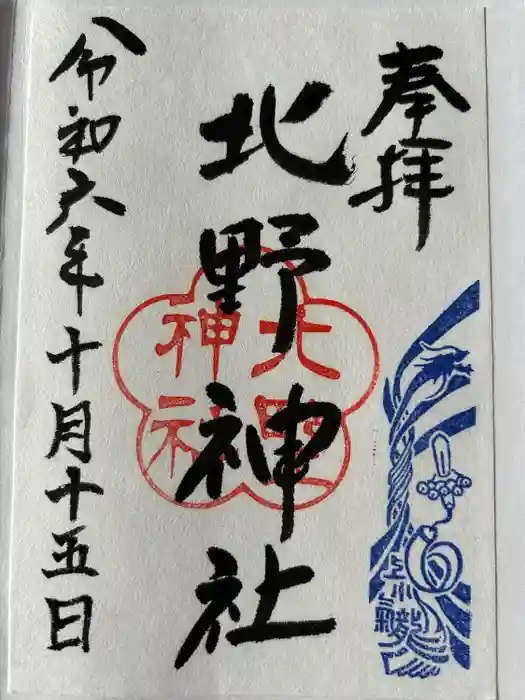 奉拝
北野神社
北野
神社
令和六年十月十五日